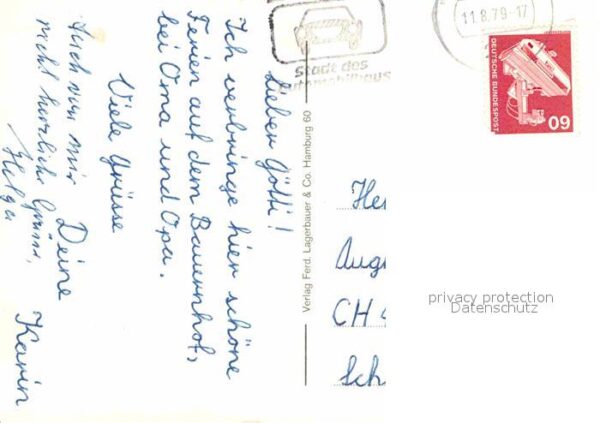 11.8.79-17
Stadt des
Automobilbaus
DEUTSCHE BUNDESPOST
60
Lieber Götti!
Ich verbringe hier schöne
Ferien auf dem Bauernhof,
bei Oma und Opa.
Viele Grüsse
Deine
Karin
Auch von mir
recht herzliche Grüsse,
Helga
Verlag Ferd. Lagerbauer & Co. Hamburg 60
He
Aug
CH 4
Sch
privacy protection
Datenschutz